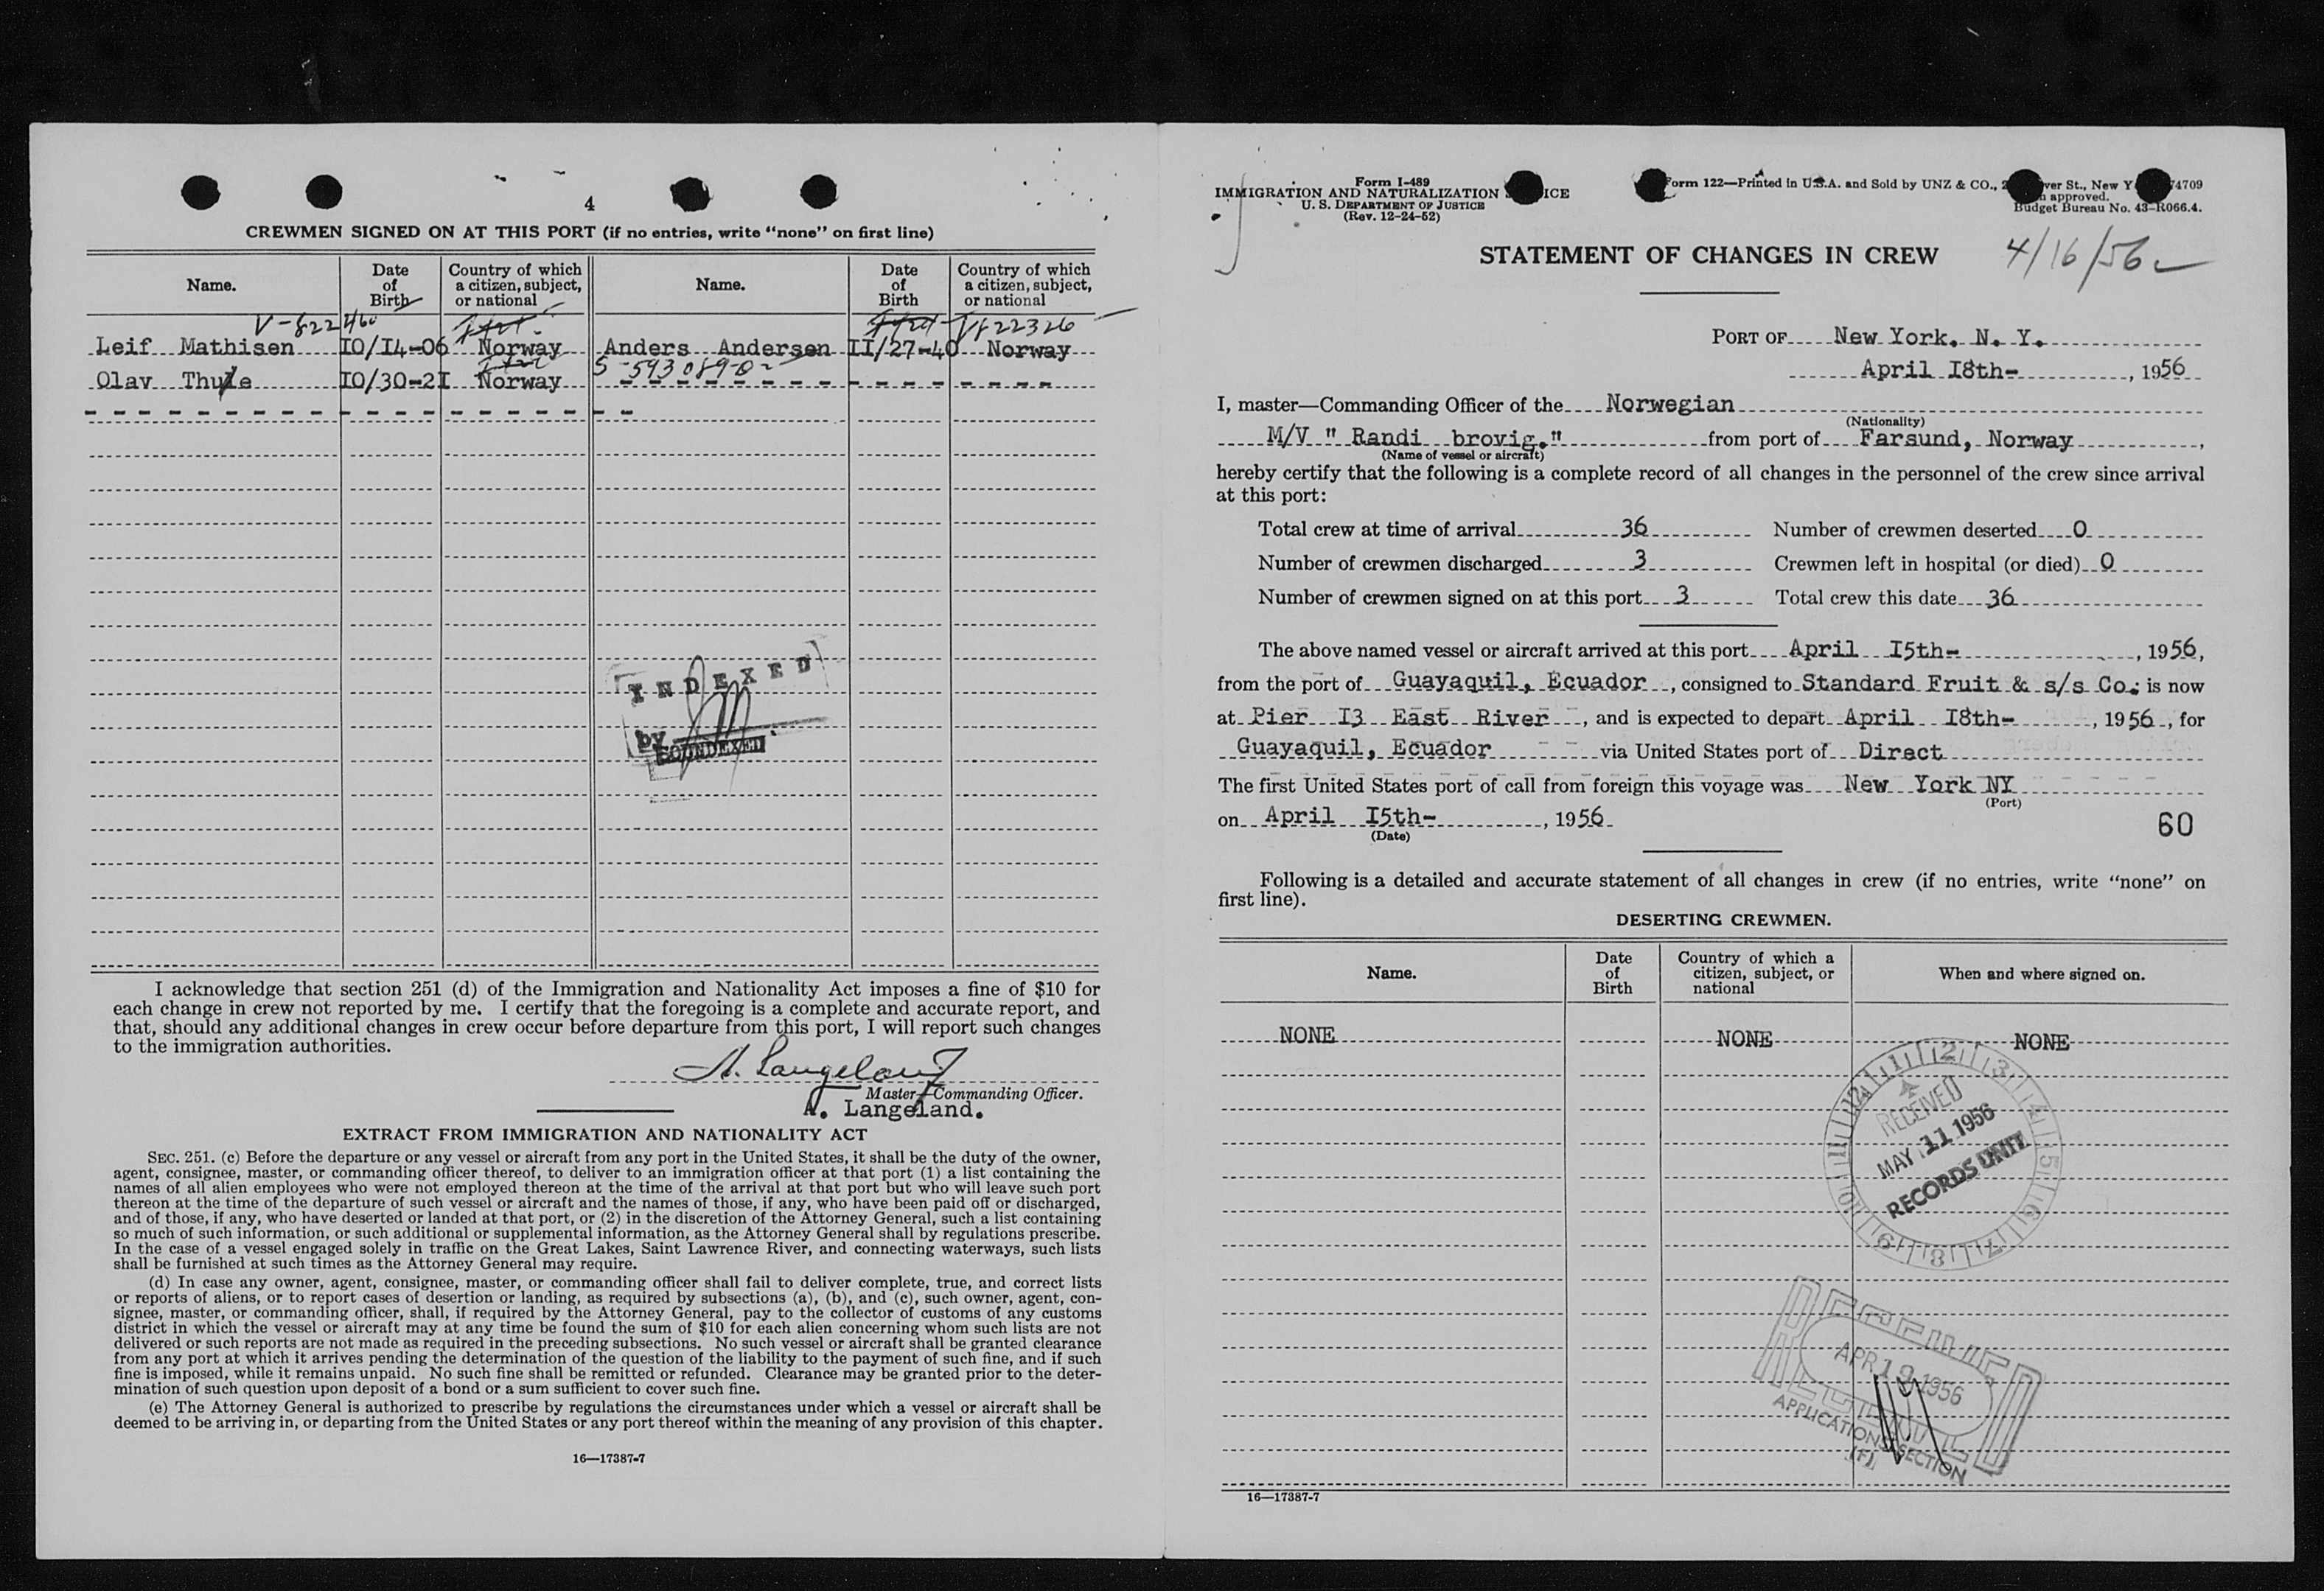 4
CREWMEN SIGNED ON AT THIS PORT (if no entries, write “none” on first line)
Name.
Date of Birth
Country of which a citizen, subject, or national
Name.
Date of Birth
Country of which a citizen, subject, or national
V-822460
V822326
Leif Mathisen IO/I4-06 Norway Anders Andersen II/27-40 Norway
Olav Thule IO/30-2I Norway
INDEXED
by
SOUNDEXED
I acknowledge that section 251 (d) of the Immigration and Nationality Act imposes a fine of $10 for
each change in crew not reported by me. I certify that the foregoing is a complete and accurate report, and
that, should any additional changes in crew occur before departure from this port, I will report such changes
to the immigration authorities.
A. Langeland
Master—Commanding Officer.
A. Langeland.
EXTRACT FROM IMMIGRATION AND NATIONALITY ACT
SEC. 251. (c) Before the departure or any vessel or aircraft from any port in the United States, it shall be the duty of the owner,
agent, consignee, master, or commanding officer thereof, to deliver to an immigration officer at that port (1) a list containing the
names of all alien employees who were not employed thereon at the time of the arrival at that port but who will leave such port
thereon at the time of the departure of such vessel or aircraft and the names of those, if any, who have been paid off or discharged,
and of those, if any, who have deserted or landed at that port, or (2) in the discretion of the Attorney General, such a list containing
so much of such information, or such additional or supplemental information, as the Attorney General shall by regulations prescribe.
In the case of a vessel engaged solely in traffic on the Great Lakes, Saint Lawrence River, and connecting waterways, such lists
shall be furnished at such times as the Attorney General may require.
(d) In case any owner, agent, consignee, master, or commanding officer shall fail to deliver complete, true, and correct lists
or reports of aliens, or to report cases of desertion or landing, as required by subsections (a), (b), and (c), such owner, agent, con-
signee, master, or commanding officer, shall, if required by the Attorney General, pay to the collector of customs of any customs
district in which the vessel or aircraft may at any time be found the sum of $10 for each alien concerning whom such lists are not
delivered or such reports are not made as required in the preceding subsections. No such vessel or aircraft shall be granted clearance
from any port at which it arrives pending the determination of the question of the liability to the payment of such fine, and if such
fine is imposed, while it remains unpaid. No such fine shall be remitted or refunded. Clearance may be granted prior to the deter-
mination of such question upon deposit of a bond or a sum sufficient to cover such fine.
(e) The Attorney General is authorized to prescribe by regulations the circumstances under which a vessel or aircraft shall be
deemed to be arriving in, or departing from the United States or any port thereof within the meaning of any provision of this chapter.
16—17387-7
Form I-489
IMMIGRATION AND NATURALIZATION
U. S. DEPARTMENT OF JUSTICE
(Rev. 12-24-52)
Form 122—Printed in U.S.A. and Sold by UNZ & CO., St., New 74709
approved.
Budget Bureau No. 43-R066.4.
STATEMENT OF CHANGES IN CREW
4/16/56
PORT OF New York. N. Y.
April I8th- , 1956
I, master—Commanding Officer of the Norwegian
(Nationality)
M/V " Randi brovig." from port of Farsund, Norway ,
(Name of vessel or aircraft)
hereby certify that the following is a complete record of all changes in the personnel of the crew since arrival
at this port:
Total crew at time of arrival 36 Number of crewmen deserted 0
Number of crewmen discharged 3 Crewmen left in hospital (or died) 0
Number of crewmen signed on at this port 3 Total crew this date 36
The above named vessel or aircraft arrived at this port April I5th- , 1956,
from the port of Guayaquil, Ecuador , consigned to Standard Fruit & s/s Co.; is now
at Pier I3 East River , and is expected to depart April I8th- , 1956 , for
Guayaquil, Ecuador via United States port of Direct
The first United States port of call from foreign this voyage was New York NY
(Port)
on April I5th- , 1956
(Date)
60
Following is a detailed and accurate statement of all changes in crew (if no entries, write “none” on
first line).
DESERTING CREWMEN.
Name.
Date of Birth
Country of which a citizen, subject, or national
When and where signed on.
NONE NONE NONE
RECEIVED
MAY 11 1956
RECORDS UNIT
1 2 3 4 5 6 7 8 9 10 11 12
APR 19 1956
APPLICATIONS SECTION
(F)
16—17387-7